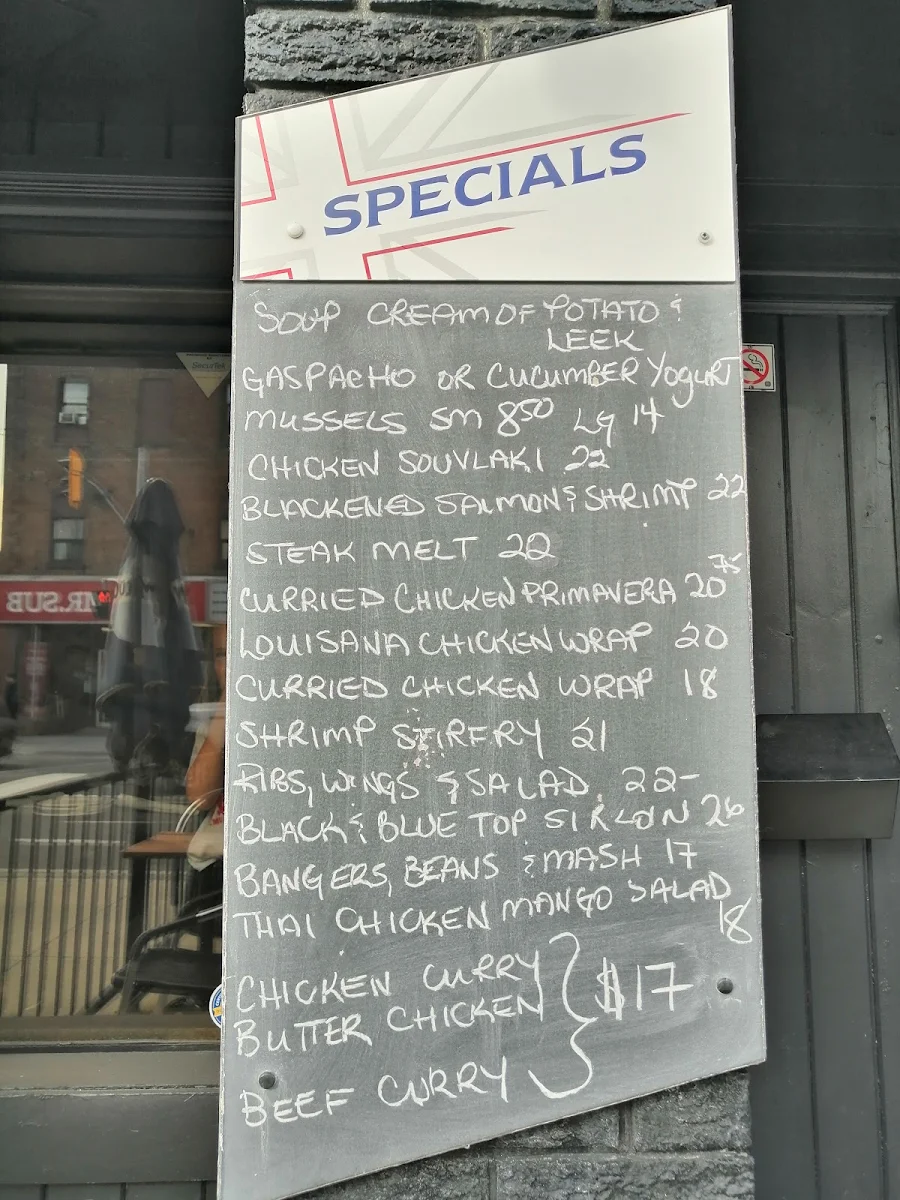 SPECIALS
SOUP CREAM OF POTATO &
LEEK
GASPACHO OR CUCUMBER YOGURT
MUSSELS SM 8.50 LG 14
CHICKEN SOUVLAKI 22
BLACKENED SALMON & SHRIMP 22
STEAK MELT 20
CURRIED CHICKEN PRIMAVERA 20 75
LOUISANA CHICKEN WRAP 20
CURRIED CHICKEN WRAP 18
SHRIMP STIRFRY 21
RIBS, WINGS & SALAD, 22-
BLACK & BLUE TOP SIRLOIN 26
BANGERS, BEANS & MASH 17
THAI CHICKEN MANGO SALAD
18
CHICKEN CURRY
BUTTER CHICKEN $17
BEEF CURRY
MR.SUB